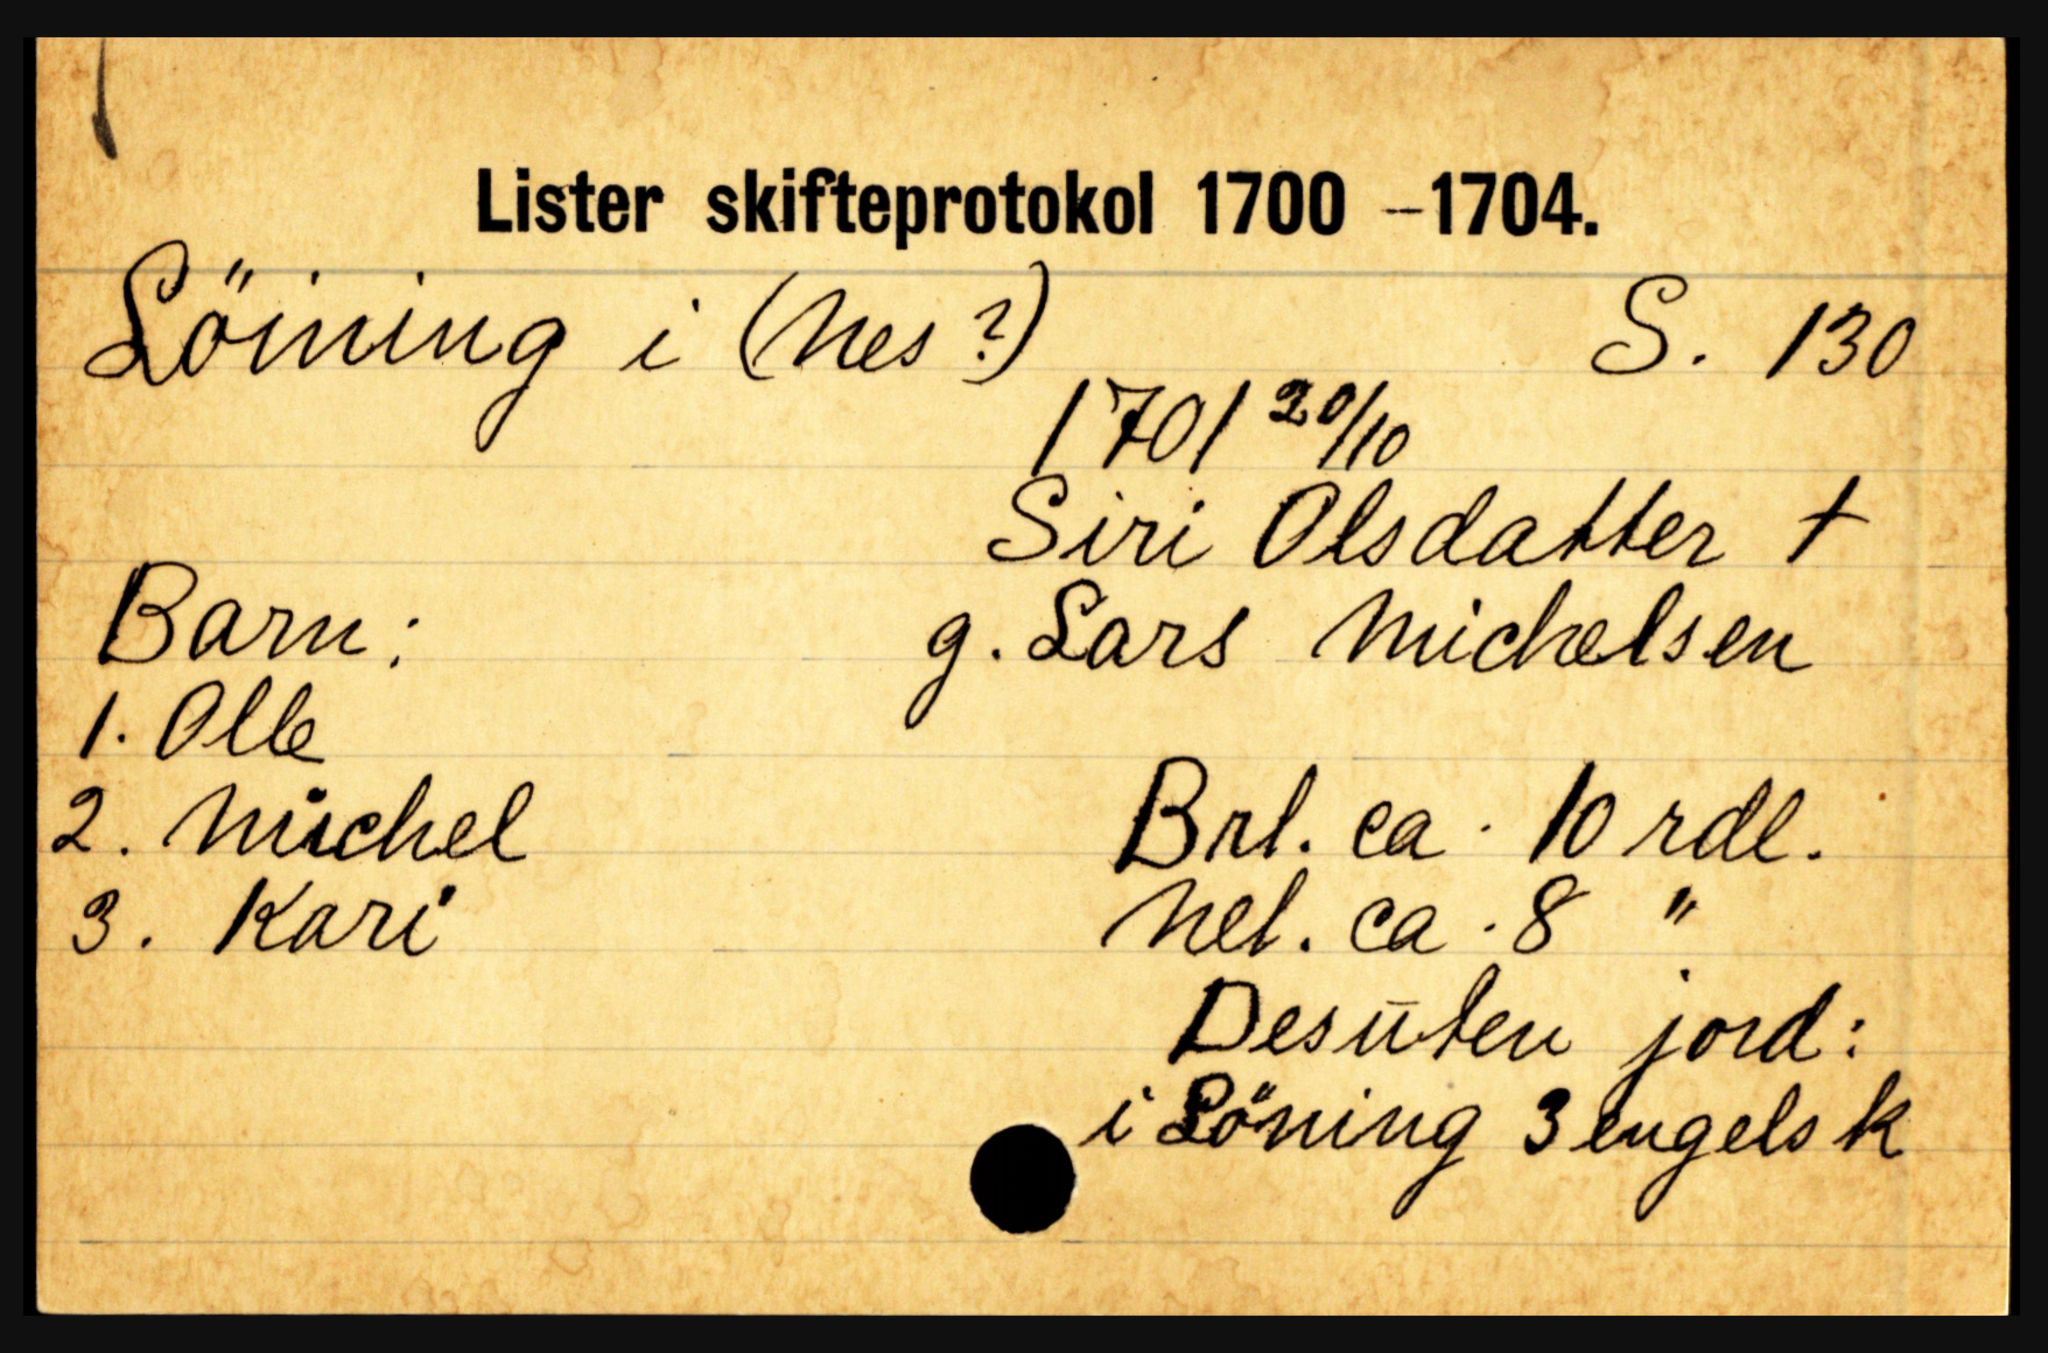 Lister skifteprotokol 1700 –1704.
Löining i (Nes?) S. 130
1701 20/10
Siri Olsdatter †
Barn: g. Lars Michelsen
1. Olle
2. Michel Brl. ca. 10 rdl.
3. Kari Nel. ca. 8 "
Desūten jord:
i Löning 3 engelsk